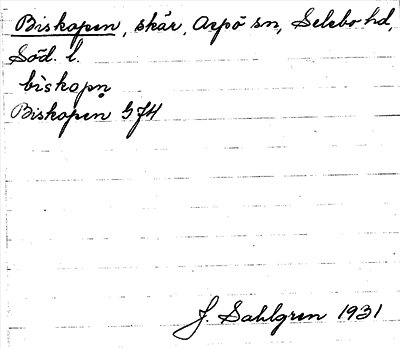 Biskopen, skär, Aspö sn, Selebo hd,
Söd. l.
bìskopn̥
Biskopen GJH
J. Sahlgren 1931